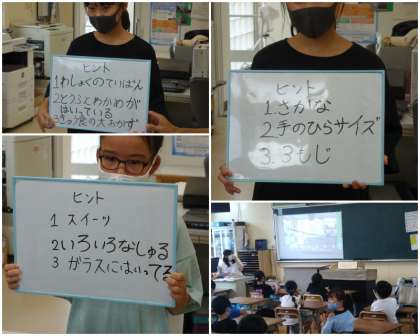 ヒント
1わしょくのていばん
2とうふとわかめが
はいっている
3きゅう食の大おかず
ヒント
1.さかな
2手のひらサイズ
3.3もじ
ヒント
1 スイーツ
2いろいろなしゅる
3 ガラスにはいってる